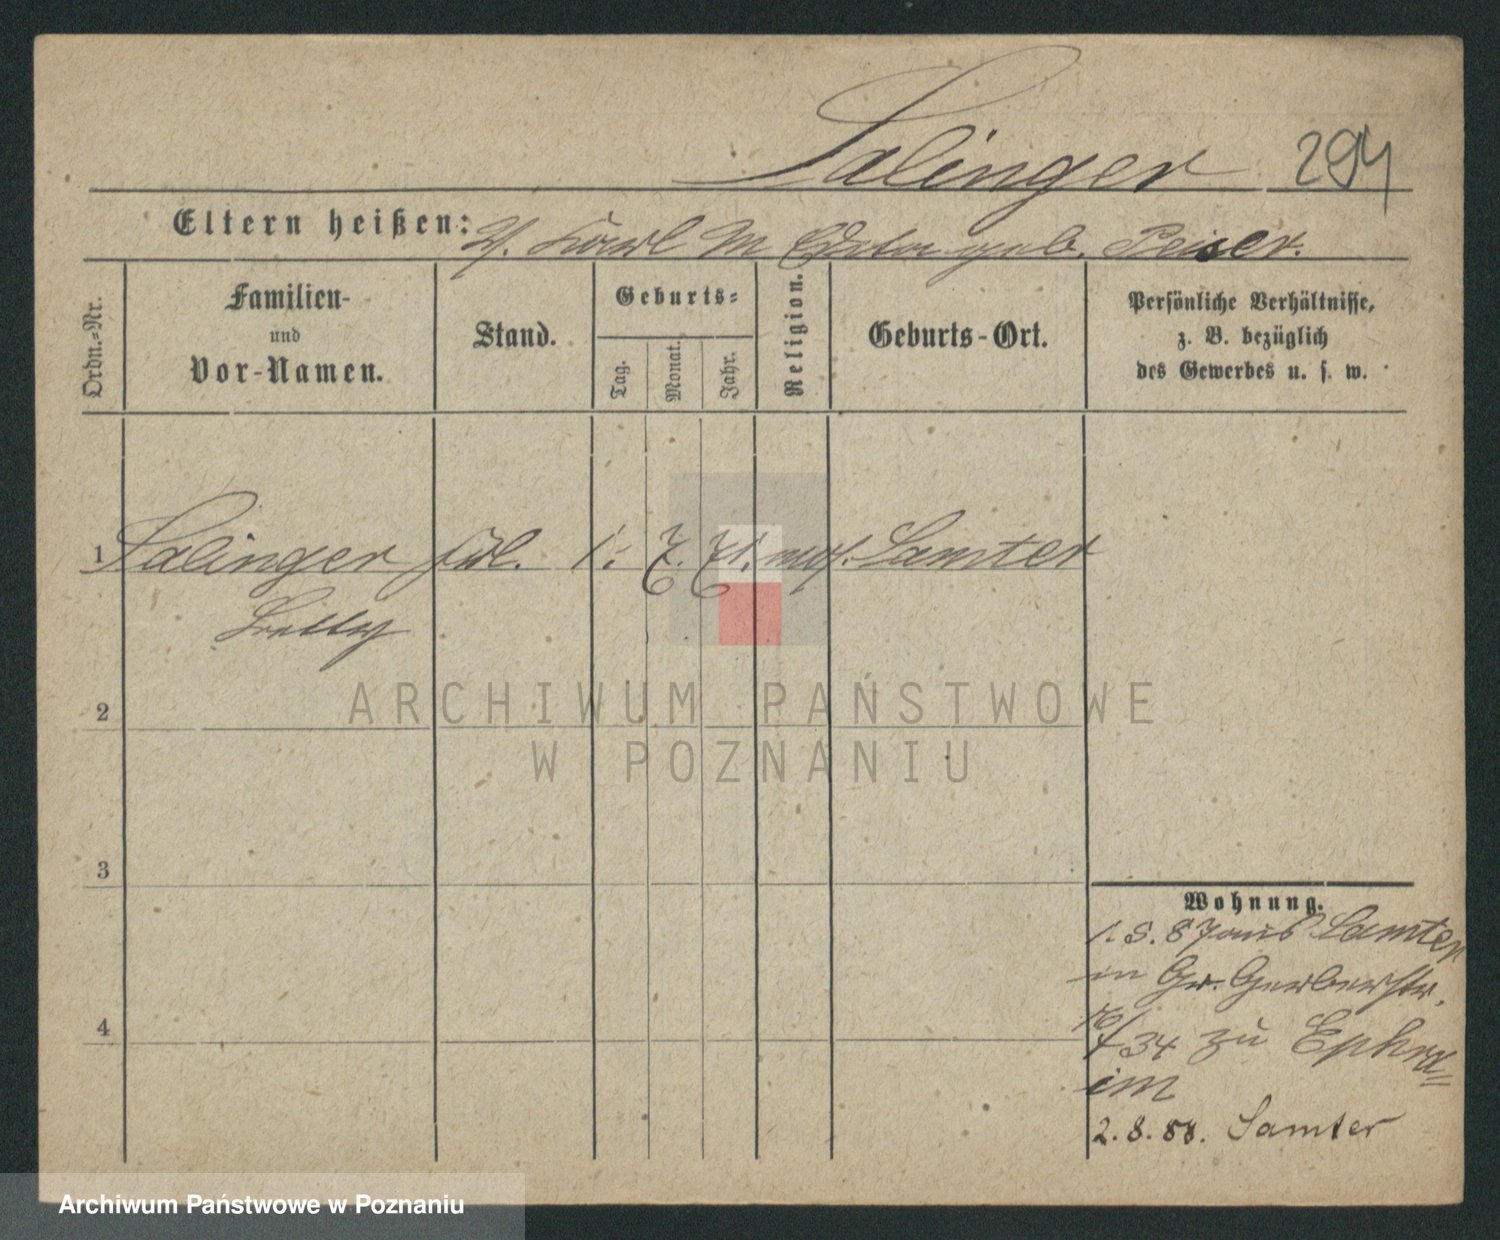 Salinger 294
Eltern heißen: V. Karl M geb. Peiser.
Ordn.-Nr.
Familien-
und
Vor-Namen.
Stand.
Geburts-
Tag.
Monat.
Jahr.
Religion.
Geburts-Ort.
Persönliche Verhältnisse,
z. B. bezüglich
des Gewerbes u. s. w.
1 Salinger 1. 7. 71. mos. Samter
2
3
4
Wohnung.
aus Samter
in Gr. Gerberstr.
34 zu Ephra=
im
2.8.88. Samter
ARCHIWUM PAŃSTWOWE
W POZNANIU
Archiwum Państwowe w Poznaniu